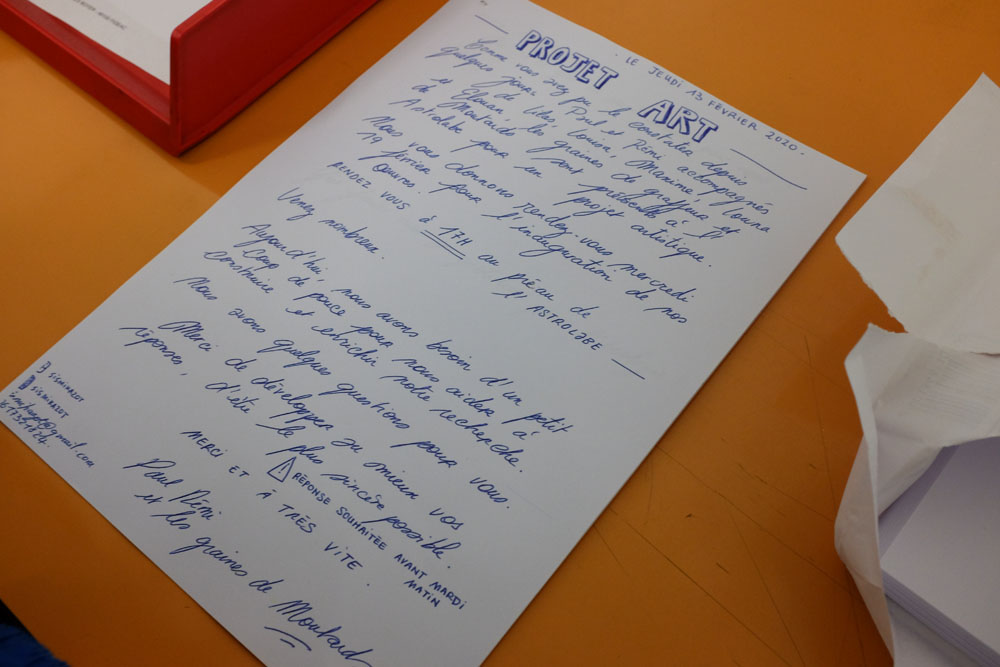 LE JEUDI 13 FÉVRIER 2020.
PROJET ART
Comme vous avez pu le constater depuis
quelques jours Paul et Rémi accompagnés
de Louisa, Maxime, Louna
et Elouan, les graines de graffeur et
de Moutarde sont présents à l'
Astrolabe pour un projet artistique.
Nous vous donnons rendez-vous mercredi
19 février pour l'inauguration de nos
Œuvres.
RENDEZ VOUS à 17H au préau de
l'ASTROLABE
Venez nombreux.
Aujourd'hui, nous avons besoin d'un petit
Coup de pouce pour nous aider à
construire et enrichir notre recherche.
Nous avons quelques questions pour vous.
Merci de développer au mieux vos
réponses, d'être le plus sincère possible.
RÉPONSE SOUHAITÉE AVANT MARDI
MATIN
MERCI ET À TRÈS VITE.
Paul Rémi
et les graines de Moutard
SISMIKAZOT
SISMIKAZOT
@gmail.com